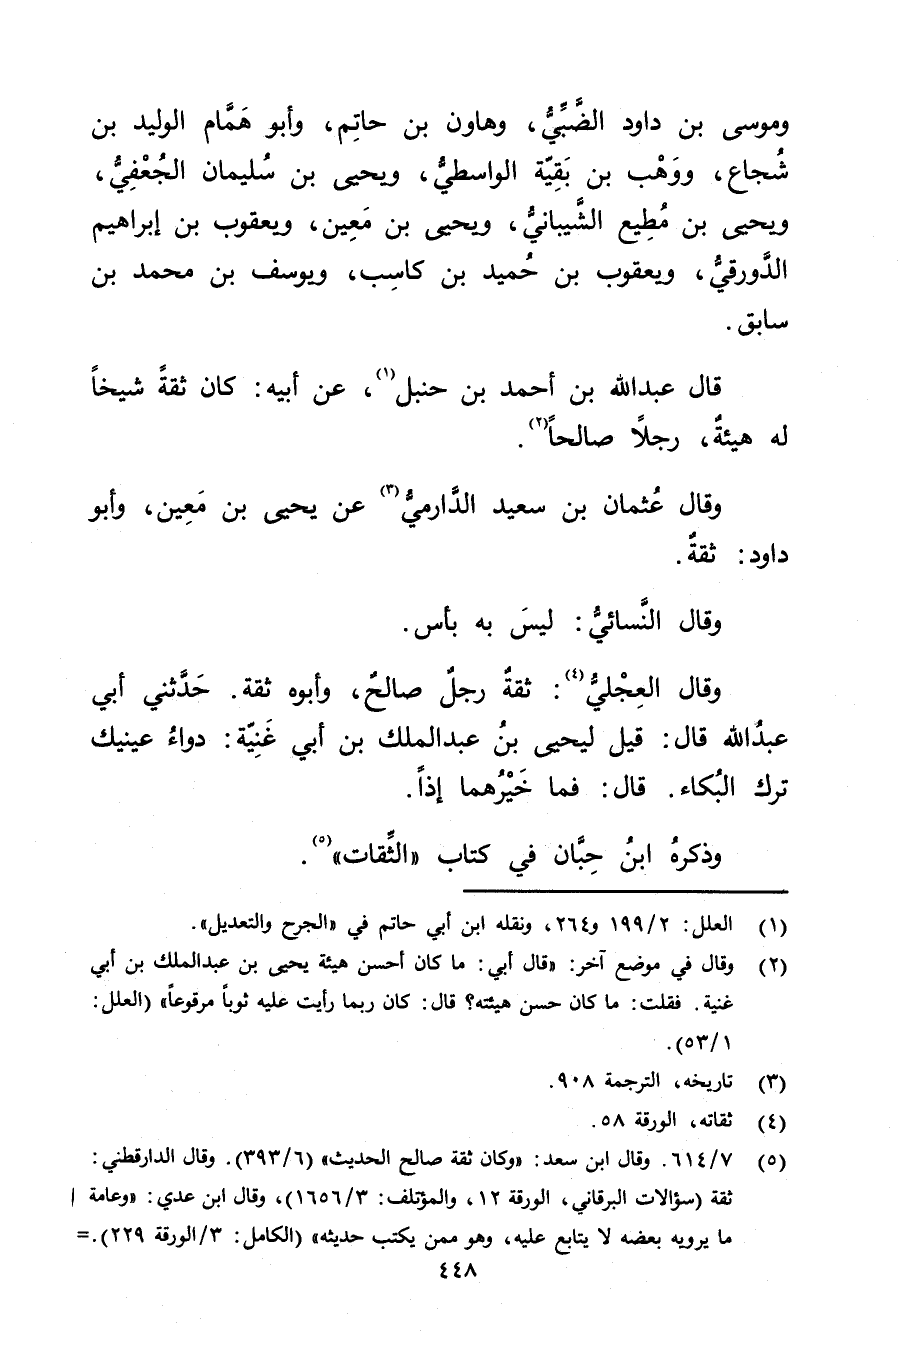 وموسى بن داود الضَّبِّيُّ، وهاون بن حاتِم، وأبو هَمَّام الوليد بن
شُجاع، ووَهْب بن بَقِيّة الواسطيُّ، ويحيى بن سُليمان الجُعْفِيُّ،
ويحيى بن مُطِيع الشَّيبانيُّ، ويحيى بن مَعِين، ويعقوب بن إبراهيم
الدَّورقيُّ، ويعقوب بن حُميد بن كاسِب، ويوسف بن محمد بن
سابق.
قال عبدالله بن أحمد بن حنبل(١)، عن أبيه: كان ثقةً شيخاً
له هيئةٌ، رجلًا صالحاً(٢).
وقال عُثمان بن سعيد الدَّارميُّ(٣) عن يحيى بن مَعِين، وأبو
داود: ثقةٌ.
وقال النَّسائيُّ: ليسَ به بأس.
وقال العِجْليُّ(٤): ثقةٌ رجلٌ صالحٌ، وأبوه ثقة. حَدَّثني أبي
عبدُالله قال: قيل ليحيى بنُ عبدالملك بن أبي غَنِيّة: دواءُ عينيك
ترك البُكاء. قال: فما خَيْرُهما إذاً.
وذكرهُ ابنُ حِبَّان في كتاب «الثِّقات»(٥).
(١) العلل: ١٩٩/٢ و٢٦٤، ونقله ابن أبي حاتم في «الجرح والتعديل».
(٢) وقال في موضع آخر: «قال أبي: ما كان أحسن هيئة يحيى بن عبدالملك بن أبي
غنية. فقلت: ما كان حسن هيئته؟ قال: كان ربما رأيت عليه ثوباً مرقوعاً» (العلل:
٥٣/١).
(٣) تاريخه، الترجمة ٩٠٨.
(٤) ثقاته، الورقة ٥٨.
(٥) ٦١٤/٧. وقال ابن سعد: «وكان ثقة صالح الحديث» (٣٩٣/٦). وقال الدارقطني:
ثقة (سؤالات البرقاني، الورقة ١٢، والمؤتلف: ١٦٥٦/٣)، وقال ابن عدي: «وعامة
ما يرويه بعضه لا يتابع عليه، وهو ممن يكتب حديثه» (الكامل: ٣/الورقة ٢٢٩).=
٤٤٨